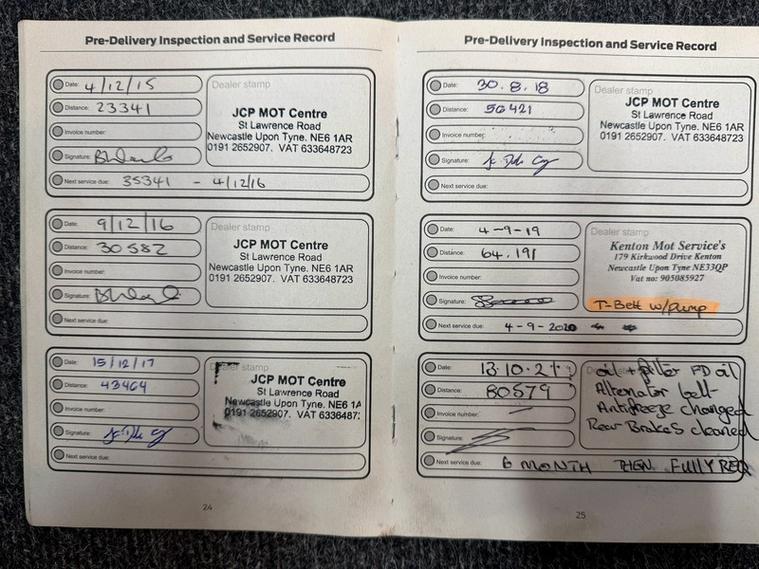 Pre-Delivery Inspection and Service Record
Date: 4/12/15
Distance: 23341
Invoice number:
Signature:
Next service due: 35341 - 4/12/16
Dealer stamp
JCP MOT Centre
St Lawrence Road
Newcastle Upon Tyne. NE6 1AR
0191 2652907. VAT 633648723
Date: 9/12/16
Distance: 30582
Invoice number:
Signature:
Next service due:
Dealer stamp
JCP MOT Centre
St Lawrence Road
Newcastle Upon Tyne. NE6 1AR
0191 2652907. VAT 633648723
Date: 15/12/17
Distance: 43464
Invoice number:
Signature:
Next service due:
stamp
JCP MOT Centre
St Lawrence Road
Newcastle Upon Tyne. NE6 1A
0191 2652907. VAT 6336487
24
Pre-Delivery Inspection and Service Record
Date: 30.8.18
Distance: 56421
Invoice number:
Signature:
Next service due:
Dealer stamp
JCP MOT Centre
St Lawrence Road
Newcastle Upon Tyne. NE6 1AR
0191 2652907. VAT 633648723
Date: 4-9-19
Distance: 64.191
Invoice number:
Signature:
Next service due: 4-9-2020
Dealer stamp
Kenton Mot Service's
179 Kirkwood Drive Kenton
Newcastle Upon Tyne NE33QP
Vat no: 905085927
T-Belt w/pump
Date: 13.10.21
Distance: 80579
Invoice number:
Signature:
Next service due: 6 MONTH THEN FULLY REQ
oil + filter FD oil
Alternator belt
Antifreeze changed
Rear Brakes cleaned
25